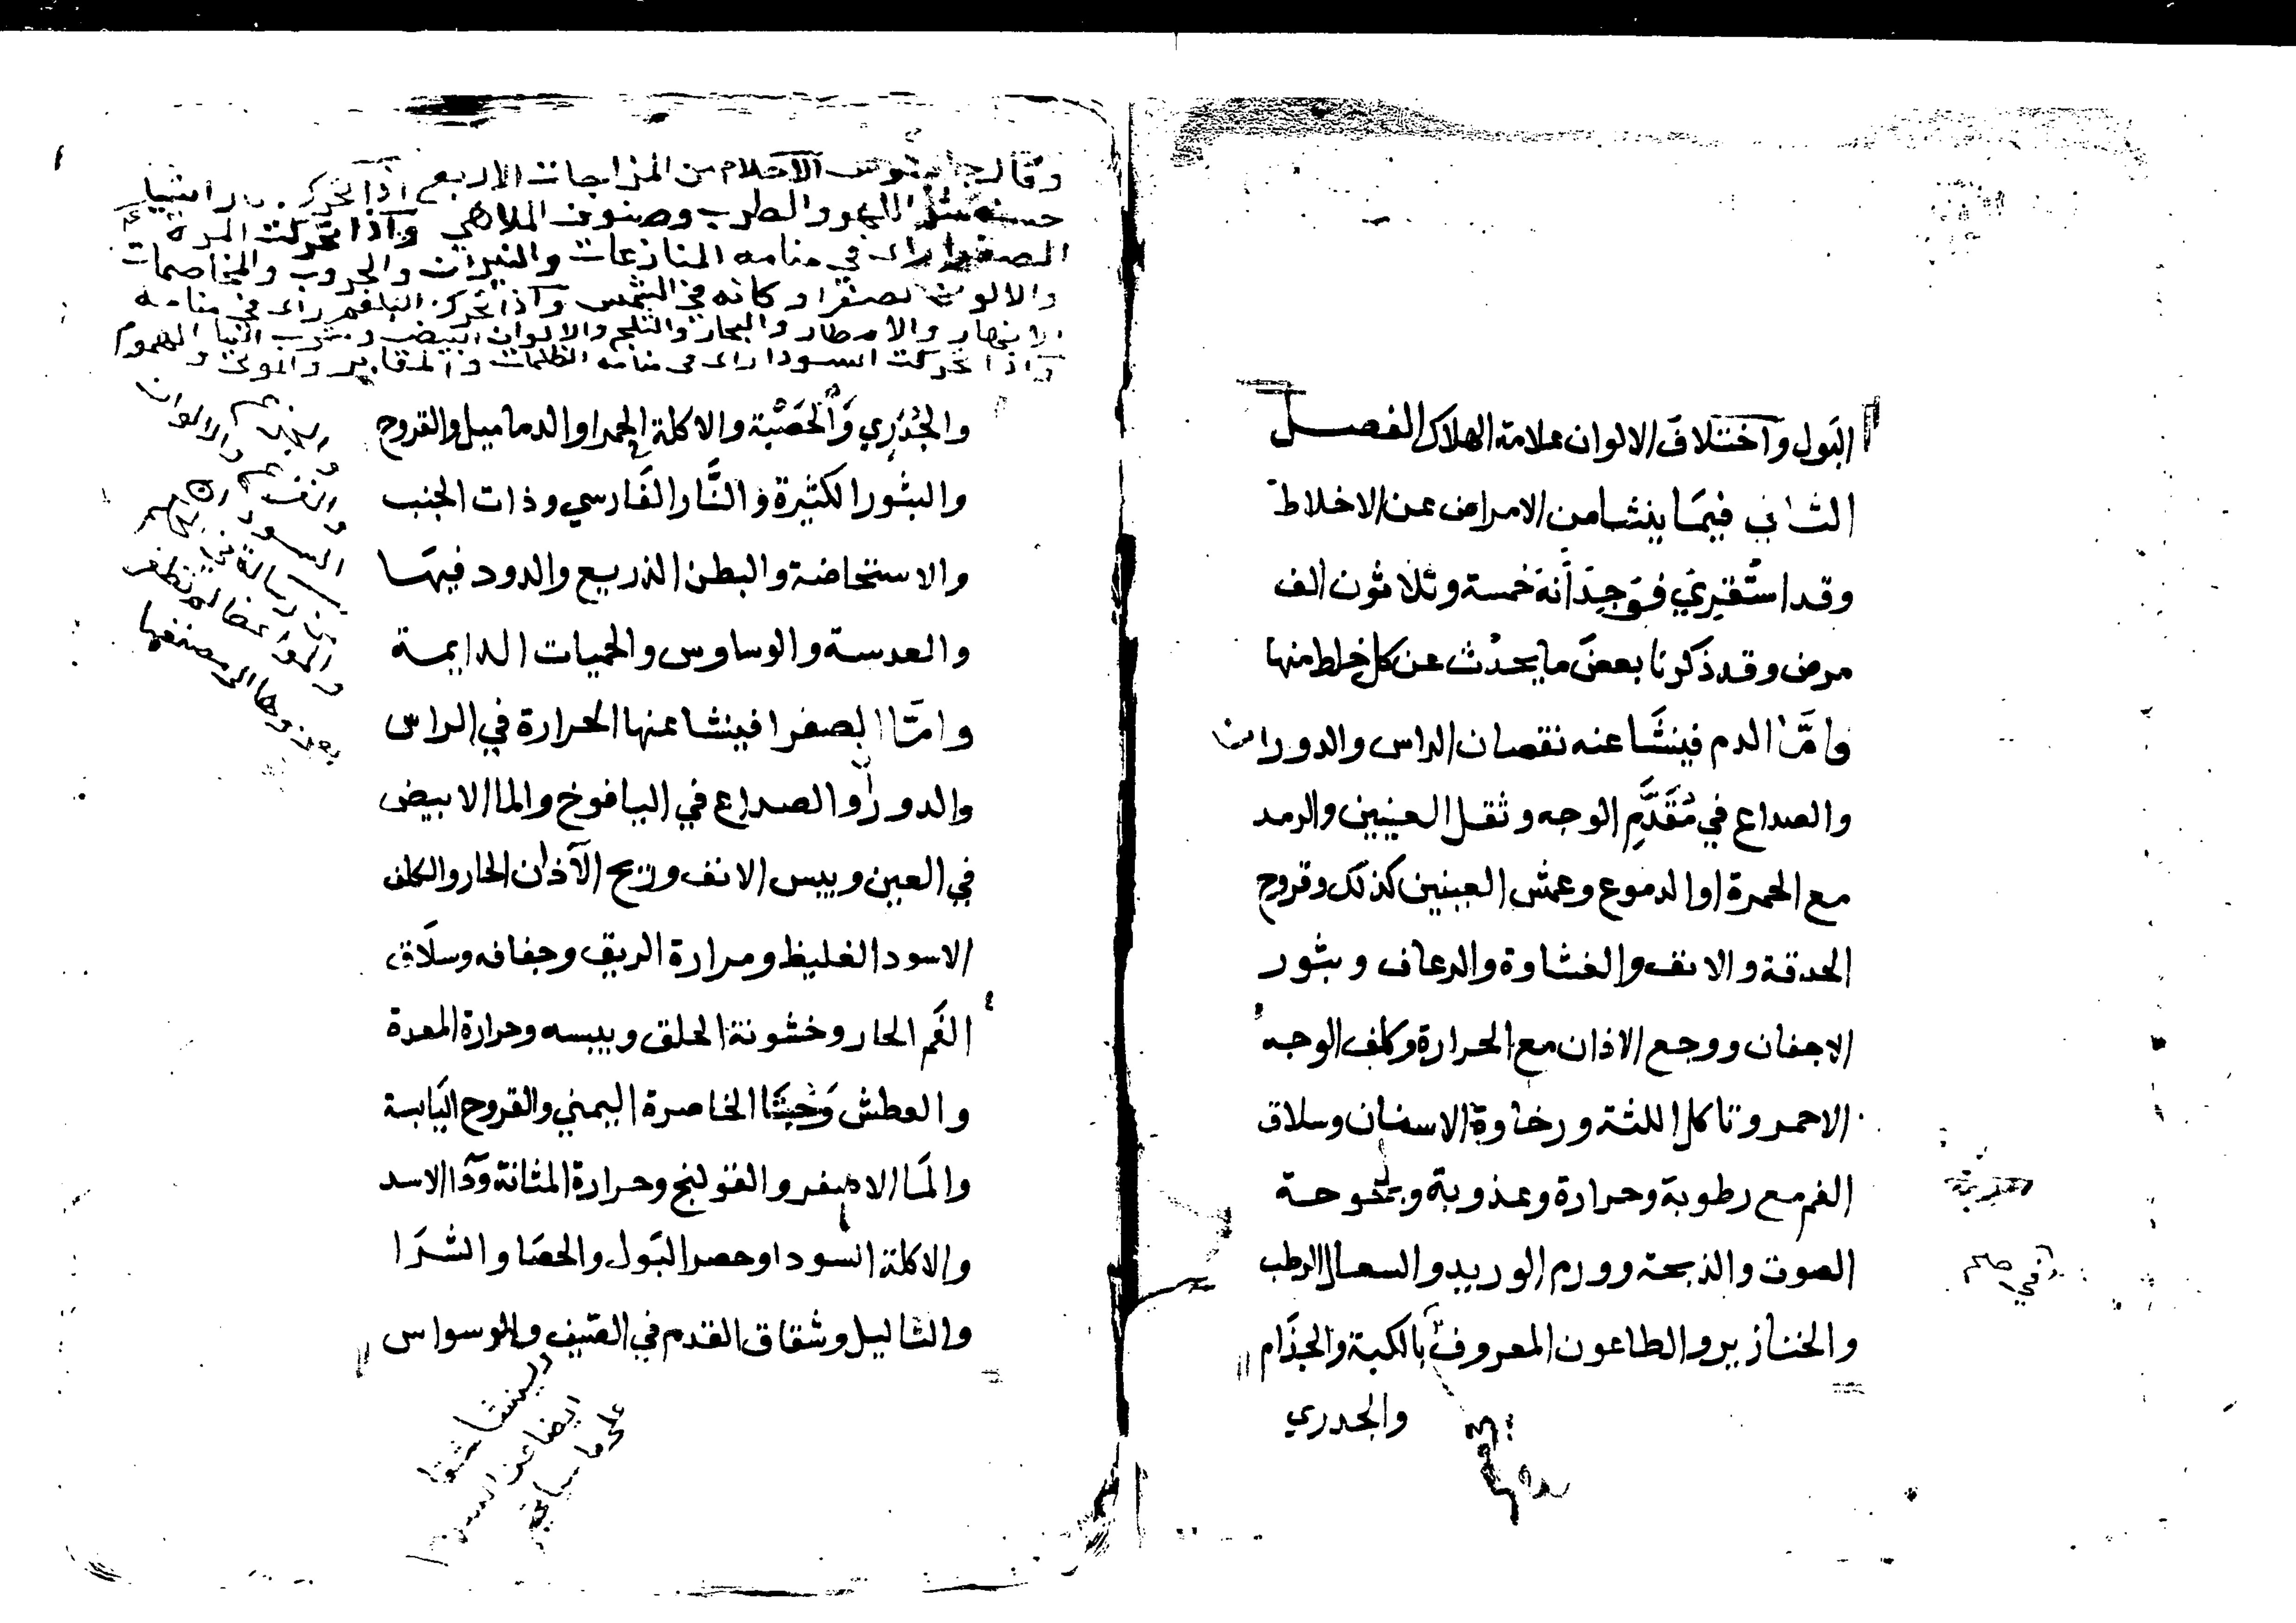 البول واختلاف الالوان علامة الهلاك الفصل
الثاني فيما ينشا من الامراض عن الاخلاط
وقد استقري فوجد أنه خمسة وثلاثون الف
مرض وقد ذكرنا بعض ما يحدث عن كل خلط منها
وامّا الدم فينشا عنه نقصان الراس والدوران
والصداع في مُقَدَّمِ الوجه وثقل العينين والرمد
مع الحمرة والدموع وعمش العينين كذلك وقروح
الحدقة والانف والغشاوة والرعاف وبثور
الاجفان ووجع الاذان مع الحرارة وكلف الوجه
الاحمر وتاكل اللثة ورخاوة الاسنان وسلاق
الفم مع رطوبة وحرارة وعذوبة وبحوحة
الصوت والذبحة وورم الوريد والسعال الرطب
والخنازير والطاعون المعروف بالكبة والجذام
والجدري
وقال جالينوس الاحلام من المزاجات الاربع اذا تحرك
حسنة مثل اللهو والطرب وصنوف الملاهي واذا تحركت المرة
الصفرا راى في منامه المنازعات والنيران والحروب والمخاصمات
والالوان لصفرا وكانه في الشمس واذا تحرك البلغم راى في منامه
الانهار والامطار والبحار والثلج والالوان البيض
واذا تحركت السودا راى في منامه الظلمات والمقابر والموتى و
والجُدَرِي وَالحَصْبَة والاكلة الحمرا والدماميل والقروح
والبثور الكثيرة والنَّار الفَارسي وذات الجنب
والاستحاضة والبطن الذريع والدود فيها
والعدسة والوساوس والحميات الدايمة
وامّا الصفرا فينشا عنها الحرارة في الراس
والدوران والصداع في اليافوخ والما الابيض
في العين ويبس الانف وريح الآذان الحار والكلف
الاسود الغليظ ومرارة الريق وجفافه وسلاق
الفَم الحار وخشونة الحلق ويبسه وحرارة المعدة
والعطش الخاصرة اليمني والقروح اليابسة
والما الاصفر والقولنج وحرارة المثانة ودا الاسد
والاكلة السودا وحصر البول والحصا والشرا
والثاليل وشقاق القدم في الصيف والوسواس
وينشا
ايضا عن
على ما سياتي